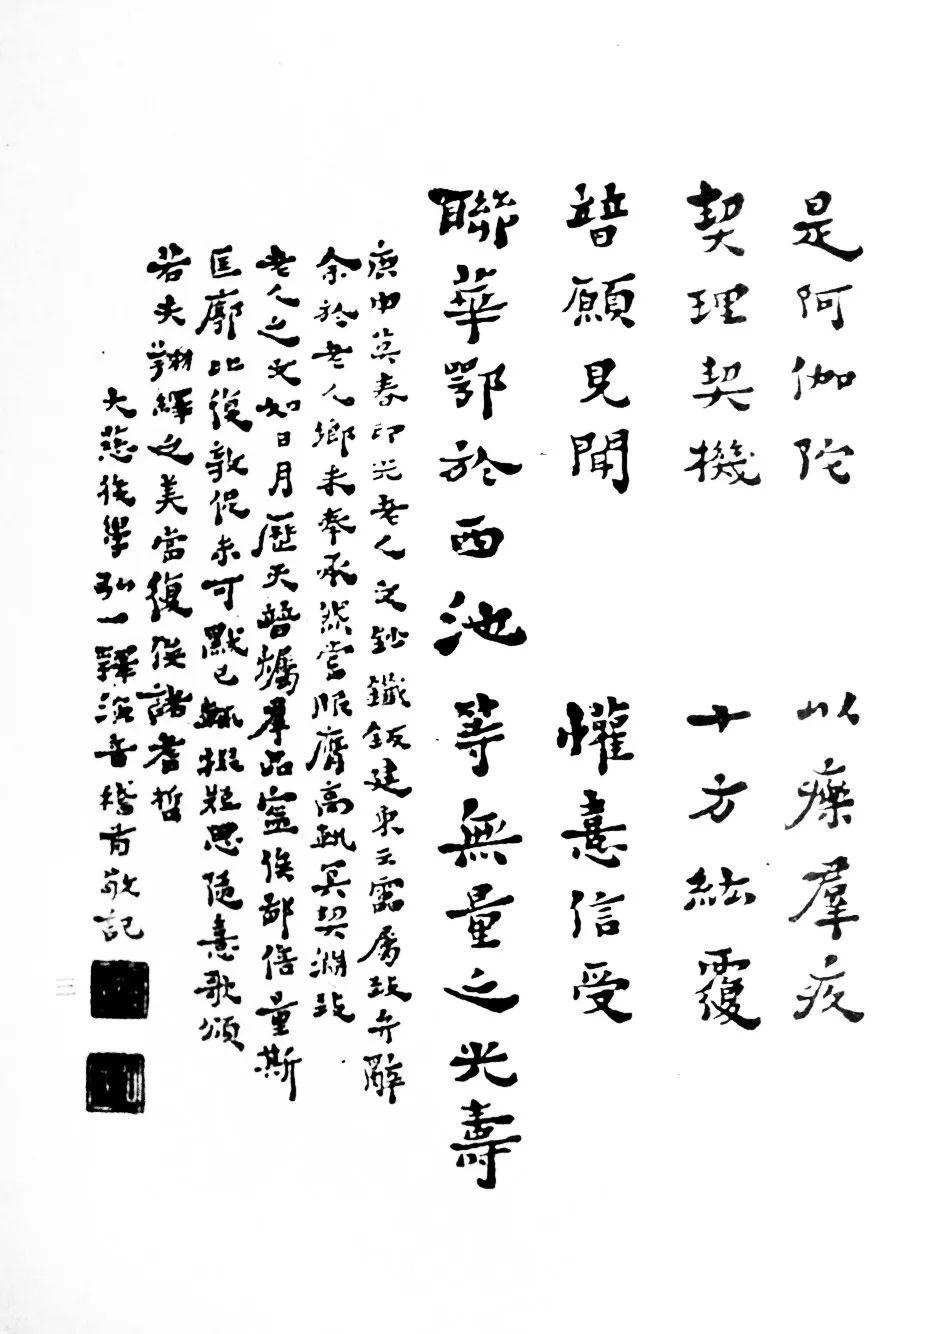 是阿伽陀　以療羣疚
契理契機　十方紘覆
普願見聞　懽憙信受
聯華鄂於西池　等無量之光壽
庚申莫春印光老人文鈔鐫版建東云雷屬致弁辭
余於老人鄉未奉承然嘗服膺高軌冥契淵致
老人之文如日月歷天普爥羣品寍俟鄙倍量斯
匡廓比復敦促未可默已輒掇短思隨憙歌頌
若夫翔繹之美當復俟諸耆哲
大慈後學弘一釋演音稽首敬記
三